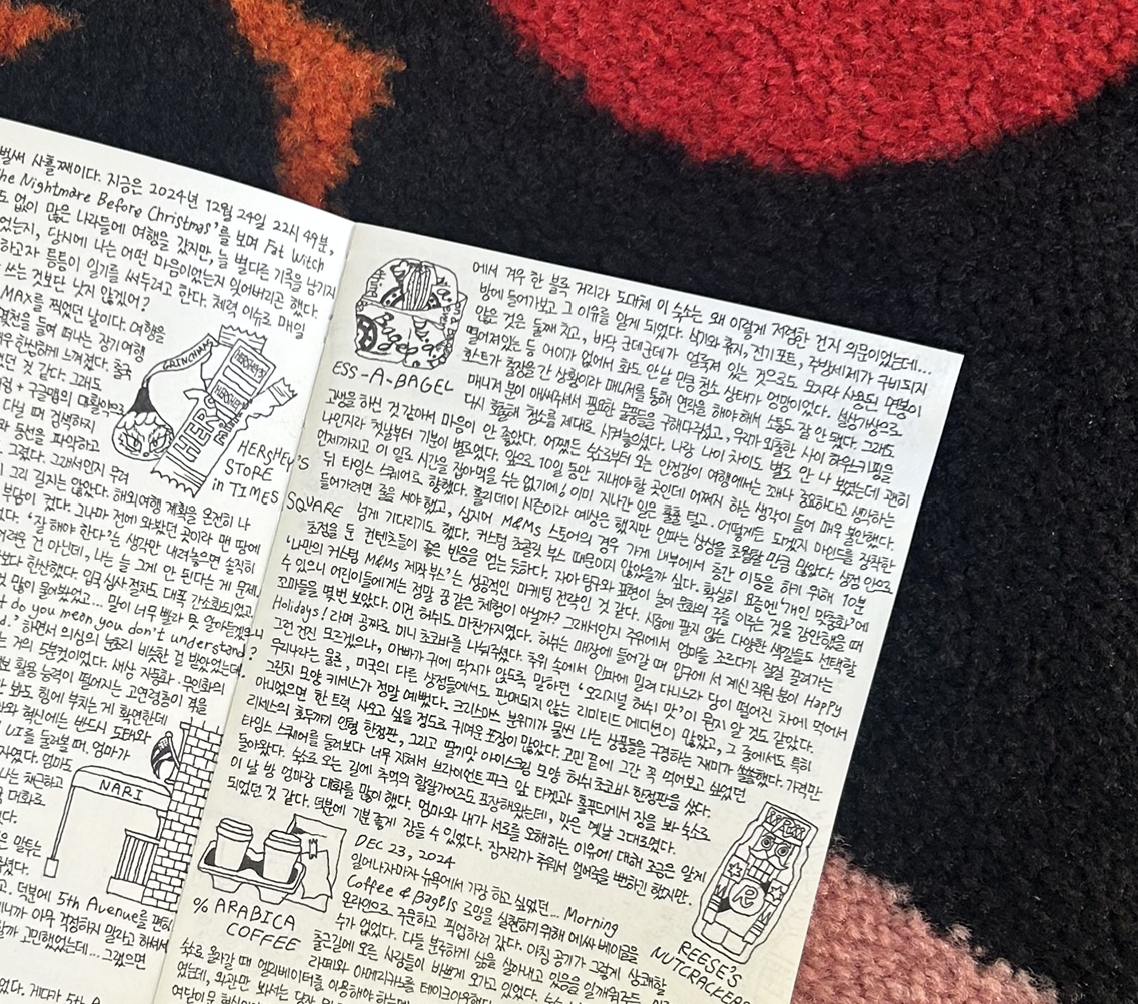 벌써 사흘째이다. 지금은 2024년 12월 24일 22시 49분,
The Nightmare Before Christmas'를 보며 Fat Witch
도 없이 많은 나라들에 여행을 갔지만, 늘 별다른 기록을 남기지
었는지, 당시에 나는 어떤 마음이었는지 잊어버리곤 했다.
하고자 틈틈이 일기를 써두려고 한다. 체력 이슈로 매일
쓰는 것보단 낫지 않겠어?
MAX를 찍었던 날이다. 여행은
들여 떠나는 장기여행
한심하게 느껴졌다. 출국
했던 것 같다. 그래도
+ 구글맵의 대활약으로
다닐 때 검색하지
와 동선을 파악하고
그랬다. 그래서인지 우려
그리 길지는 않았다. 해외여행 계획을 온전히 나
부담이 컸다. 그나마 전에 와봤던 곳이라 맨 땅에
'잘 해야 한다'는 생각만 내려놓으면 솔직히
어려운 건 아닌데, 나는 늘 그게 안 된다는 게 문제.
했다 한산했다. 입국심사 절차도 대폭 간소화되었고
많이 들어봤었고... 말이 너무 빨라 못 알아듣겠으니
do you mean you don't understand?
." 하면서 의심의 눈초리 비슷한 걸 받았었는데.
는 거의 5분컷이었다. 세상 자동화·무인화의
활용 능력이 떨어지는 고연령층이 겪을
만 봐도 힘에 부치는 게 확연한데
와 혁신에는 반드시 도태와
UI를 둘러볼 때, 엄마가
자였다. 엄마도
나는 채근하고
대화로
GRINCHMAS
HERSHEY'S
HERSHEY'S
STORE
in TIMES
SQUARE
NARI
덕분에 5th Avenue를 편히
아무 걱정하지 말라고 하셔서
할까 고민했었는데... 그랬으면
었다. 게다가 5th A
ESS-A-BAGEL
에서 겨우 한 블록 거리라 도대체 이 숙소는 왜 이렇게 저렴한 건지 의문이었는데...
방에 들어가보고 그 이유를 알게 되었다. 식기와 휴지, 전기포트, 주방세제가 구비되지
않은 것은 둘째 치고, 바닥 군데군데가 얼룩져 있는 것으로도 모자라 사용된 면봉이
떨어져있는 등 어이가 없어서 화도 안 날 만큼 청소 상태가 엉망이었다. 설상가상으로
호스트가 출장을 간 상황이라 매니저를 통해 연락을 해야 해서 소통도 잘 안 됐다. 그래도
매니저 분이 애써주셔서 필요한 물품들을 구해다주셨고, 우리가 외출한 사이 하우스키핑을
다시 호출해 청소를 제대로 시켜놓으셨다. 나랑 나이 차이도 별로 안 나 보였는데 괜히
고생을 하신 것 같아서 마음이 안 좋았다. 어쨌든 숙소로부터 오는 안정감이 여행에서는 꽤나 중요하다고 생각하는
나인지라 첫날부터 기분이 별로였다. 앞으로 10일 동안 지내야 할 곳인데 어쩌지 하는 생각이 들어 매우 불안했다.
언제까지고 이 일로 시간을 잡아먹을 수는 없기에! 이미 지나간 일은 훌훌 털고, 어떻게든 되겠지 마인드를 장착한
뒤 타임스 스퀘어로 향했다. 홀리데이 시즌이라 예상은 했지만 인파는 상상을 초월할 만큼 많았다. 상점 안으로
들어가려면 줄을 서야 했고, 심지어 M&Ms 스토어의 경우 가게 내부에서 층간 이동을 하기 위해 10분
넘게 기다리기도 했다. 커스텀 초콜릿 부스 때문이지 않았을까 싶다. 확실히 요즘엔 '개인 맞춤화'에
초점을 둔 컨텐츠들이 좋은 반응을 얻는 듯하다. 자아 탐구와 표현이 놀이 문화의 주를 이루는 것을 감안했을 때
'나만의 커스텀 M&Ms 제작 부스'는 성공적인 마케팅 전략인 것 같다. 시중에 팔지 않는 다양한 색깔들도 선택할
수 있으니 어린이들에게는 정말 꿈 같은 체험이 아닐까? 그래서인지 주위에서 엄마를 조르다가 질질 끌려가는
꼬마들을 몇번 보았다. 이건 허쉬도 마찬가지였다. 허쉬는 매장에 들어갈 때 입구에 서 계신 직원 분이 Happy
Holidays!라며 공짜로 미니 초코바를 나눠주셨다. 추위 속에서 인파에 밀려 다니느라 당이 떨어진 차에 먹어서
그런 건진 모르겠으나, 아빠가 귀에 딱지가 앉도록 말하던 '오리지널 허쉬 맛'이 뭔지 알 것도 같았다.
우리나라는 물론, 미국의 다른 상점들에서도 판매되지 않는 리미티드 에디션이 많았고, 그 중에서도 특히
그린치 모양 키세스가 정말 예뻤다. 크리스마스 분위기가 물씬 나는 상품들을 구경하는 재미가 쏠쏠했다. 가격만
아니었으면 한 트럭 사오고 싶을 정도로 귀여운 포장이 많았다. 고민 끝에 그간 꼭 먹어보고 싶었던
리세스의 호두까기 인형 한정판, 그리고 딸기맛 아이스크림 모양 허쉬 초코바 한정판을 샀다.
타임스 스퀘어를 둘러보다 너무 지쳐서 브라이언트 파크 앞 타겟과 홀푸드에서 장을 봐 숙소로
돌아왔다. 숙소로 오는 길에 추억의 할랄가이즈도 포장해왔는데, 맛은 옛날 그대로였다.
이 날 밤 엄마랑 대화를 많이 했다. 엄마와 내가 서로를 오해하는 이유에 대해 조금은 알게
되었던 것 같다. 덕분에 기분 좋게 잠들 수 있었다. 잠자리가 추워서 얼어죽을 뻔하긴 했지만.
% ARABICA
COFFEE
DEC 23, 2024
일어나자마자 뉴욕에서 가장 하고 싶었던... Morning
Coffee & Bagels 로망을 실현하기 위해 에싸 베이글을
온라인으로 주문하고 픽업하러 갔다. 아침 공기가 그렇게 상쾌할
수가 없었다. 다들 분주하게 삶을 살아내고 있음을 일깨워주는
출근길에 오른 사람들이 바쁘게 오가고 있었다.
라떼와 아메리카노를 테이크아웃했다.
숙소로 올라갈 때 엘리베이터를 이용해야 하는데
었는데, 외관만 봐서는
REESE'S
NUTCRACKERS